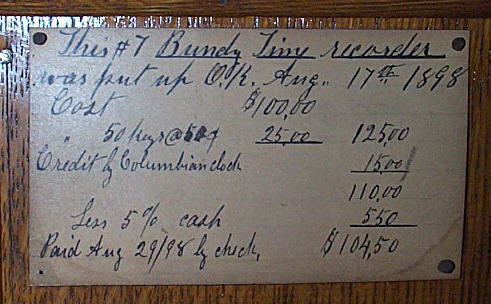 This #7 Bundy Time recorder
was put up O.K. Aug. 17th 1898
Cost $100,00
" 50 keys @ 50¢ 25,00 125,00
Credit by Columbian clock 15,00
110,00
Less 5% cash 550
Paid Aug 29/98 by check, $104,50